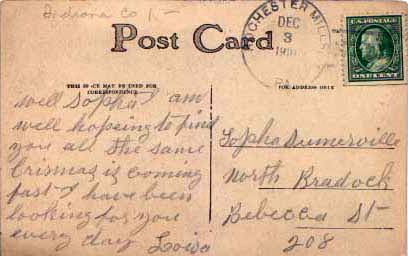 Indiana Co 1-
Post Card
ROCHESTER MILLS
DEC
3
PA.
U.S. POSTAGE
ONE CENT
THIS SPACE MAY BE USED FOR
CORRESPONDENCE
FOR ADDRESS ONLY
well Sopha I am
well hopeing to find
you all the same
Crismas is comeing
fast I have been
looking for you
every day Lois
Sopha Dumerville
North Bradock
Bebecca St
208